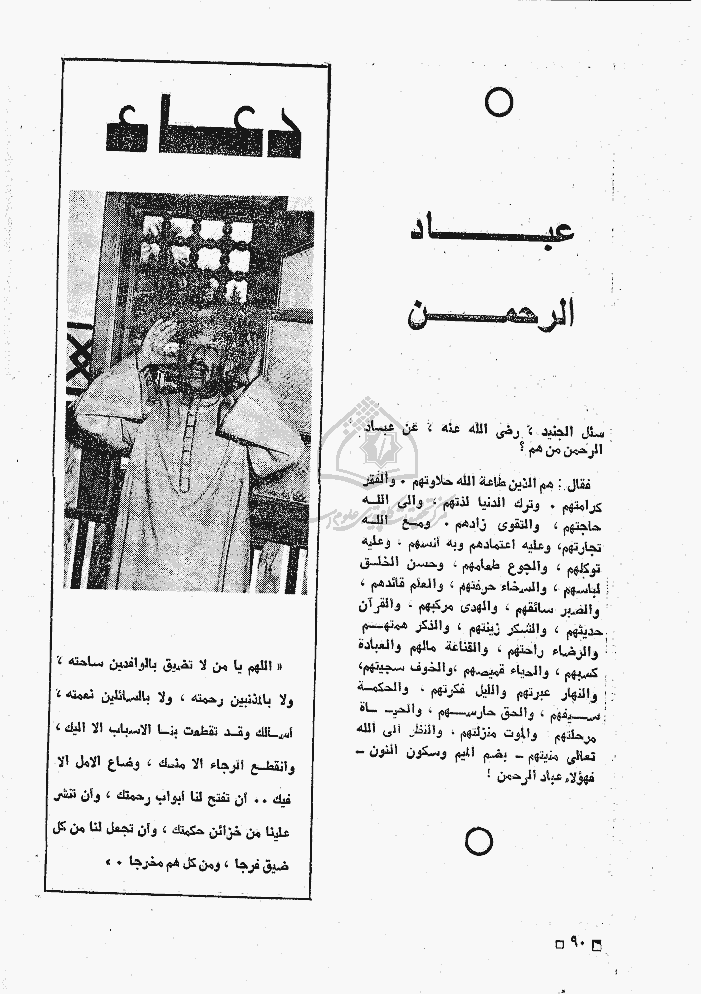 عباد
الرحمن
سئل الجنيد ، رضى الله عنه ، عن عباد
الرحمن من هم ؟
فقال : هم الذين طاعة الله حلاوتهم ٠ والفقر
كرامتهم ٠ وترك الدنيا لذتهم ، والى الله
حاجتهم ، والتقوى زادهم ٠ ومع الله
تجارتهم، وعليه اعتمادهم وبه أنسهم ، وعليه
توكلهم ، والجوع طعامهم ، وحسن الخلق
لباسهم ، والسخاء حرفتهم ، والعلم قائدهم ،
والصبر سائقهم ، والهدى مركبهم ، والقرآن
حديثهم ، والشكر زينتهم ، والذكر همتهم
والرضاء راحتهم ، والقناعة مالهم والعبادة
كسبهم ، والحياء قميصهم ،والخوف سجيتهم،
والنهار عبرتهم والليل فكرتهم ، والحكمة
سيفهم ، والحق حارسهم ، والحياة
مرحلتهم والموت منزلتهم ، والنظر الى الله
تعالى منيتهم – بضم الميم وسكون النون –
فهؤلاء عباد الرحمن !
دعاء
« اللهم يا من لا تضيق بالوافدين ساحته ،
ولا بالمذنبين رحمته ، ولا بالسائلين نعمته ،
أسألك وقد تقطعت بنا الاسباب الا اليك ،
وانقطع الرجاء الا منك ، وضاع الامل الا
فيك ٠٠ أن تفتح لنا أبواب رحمتك ، وأن تنشر
علينا من خزائن حكمتك ، وأن تجعل لنا من كل
ضيق فرجا ، ومن كل هم مخرجا ٠ »
٩٠